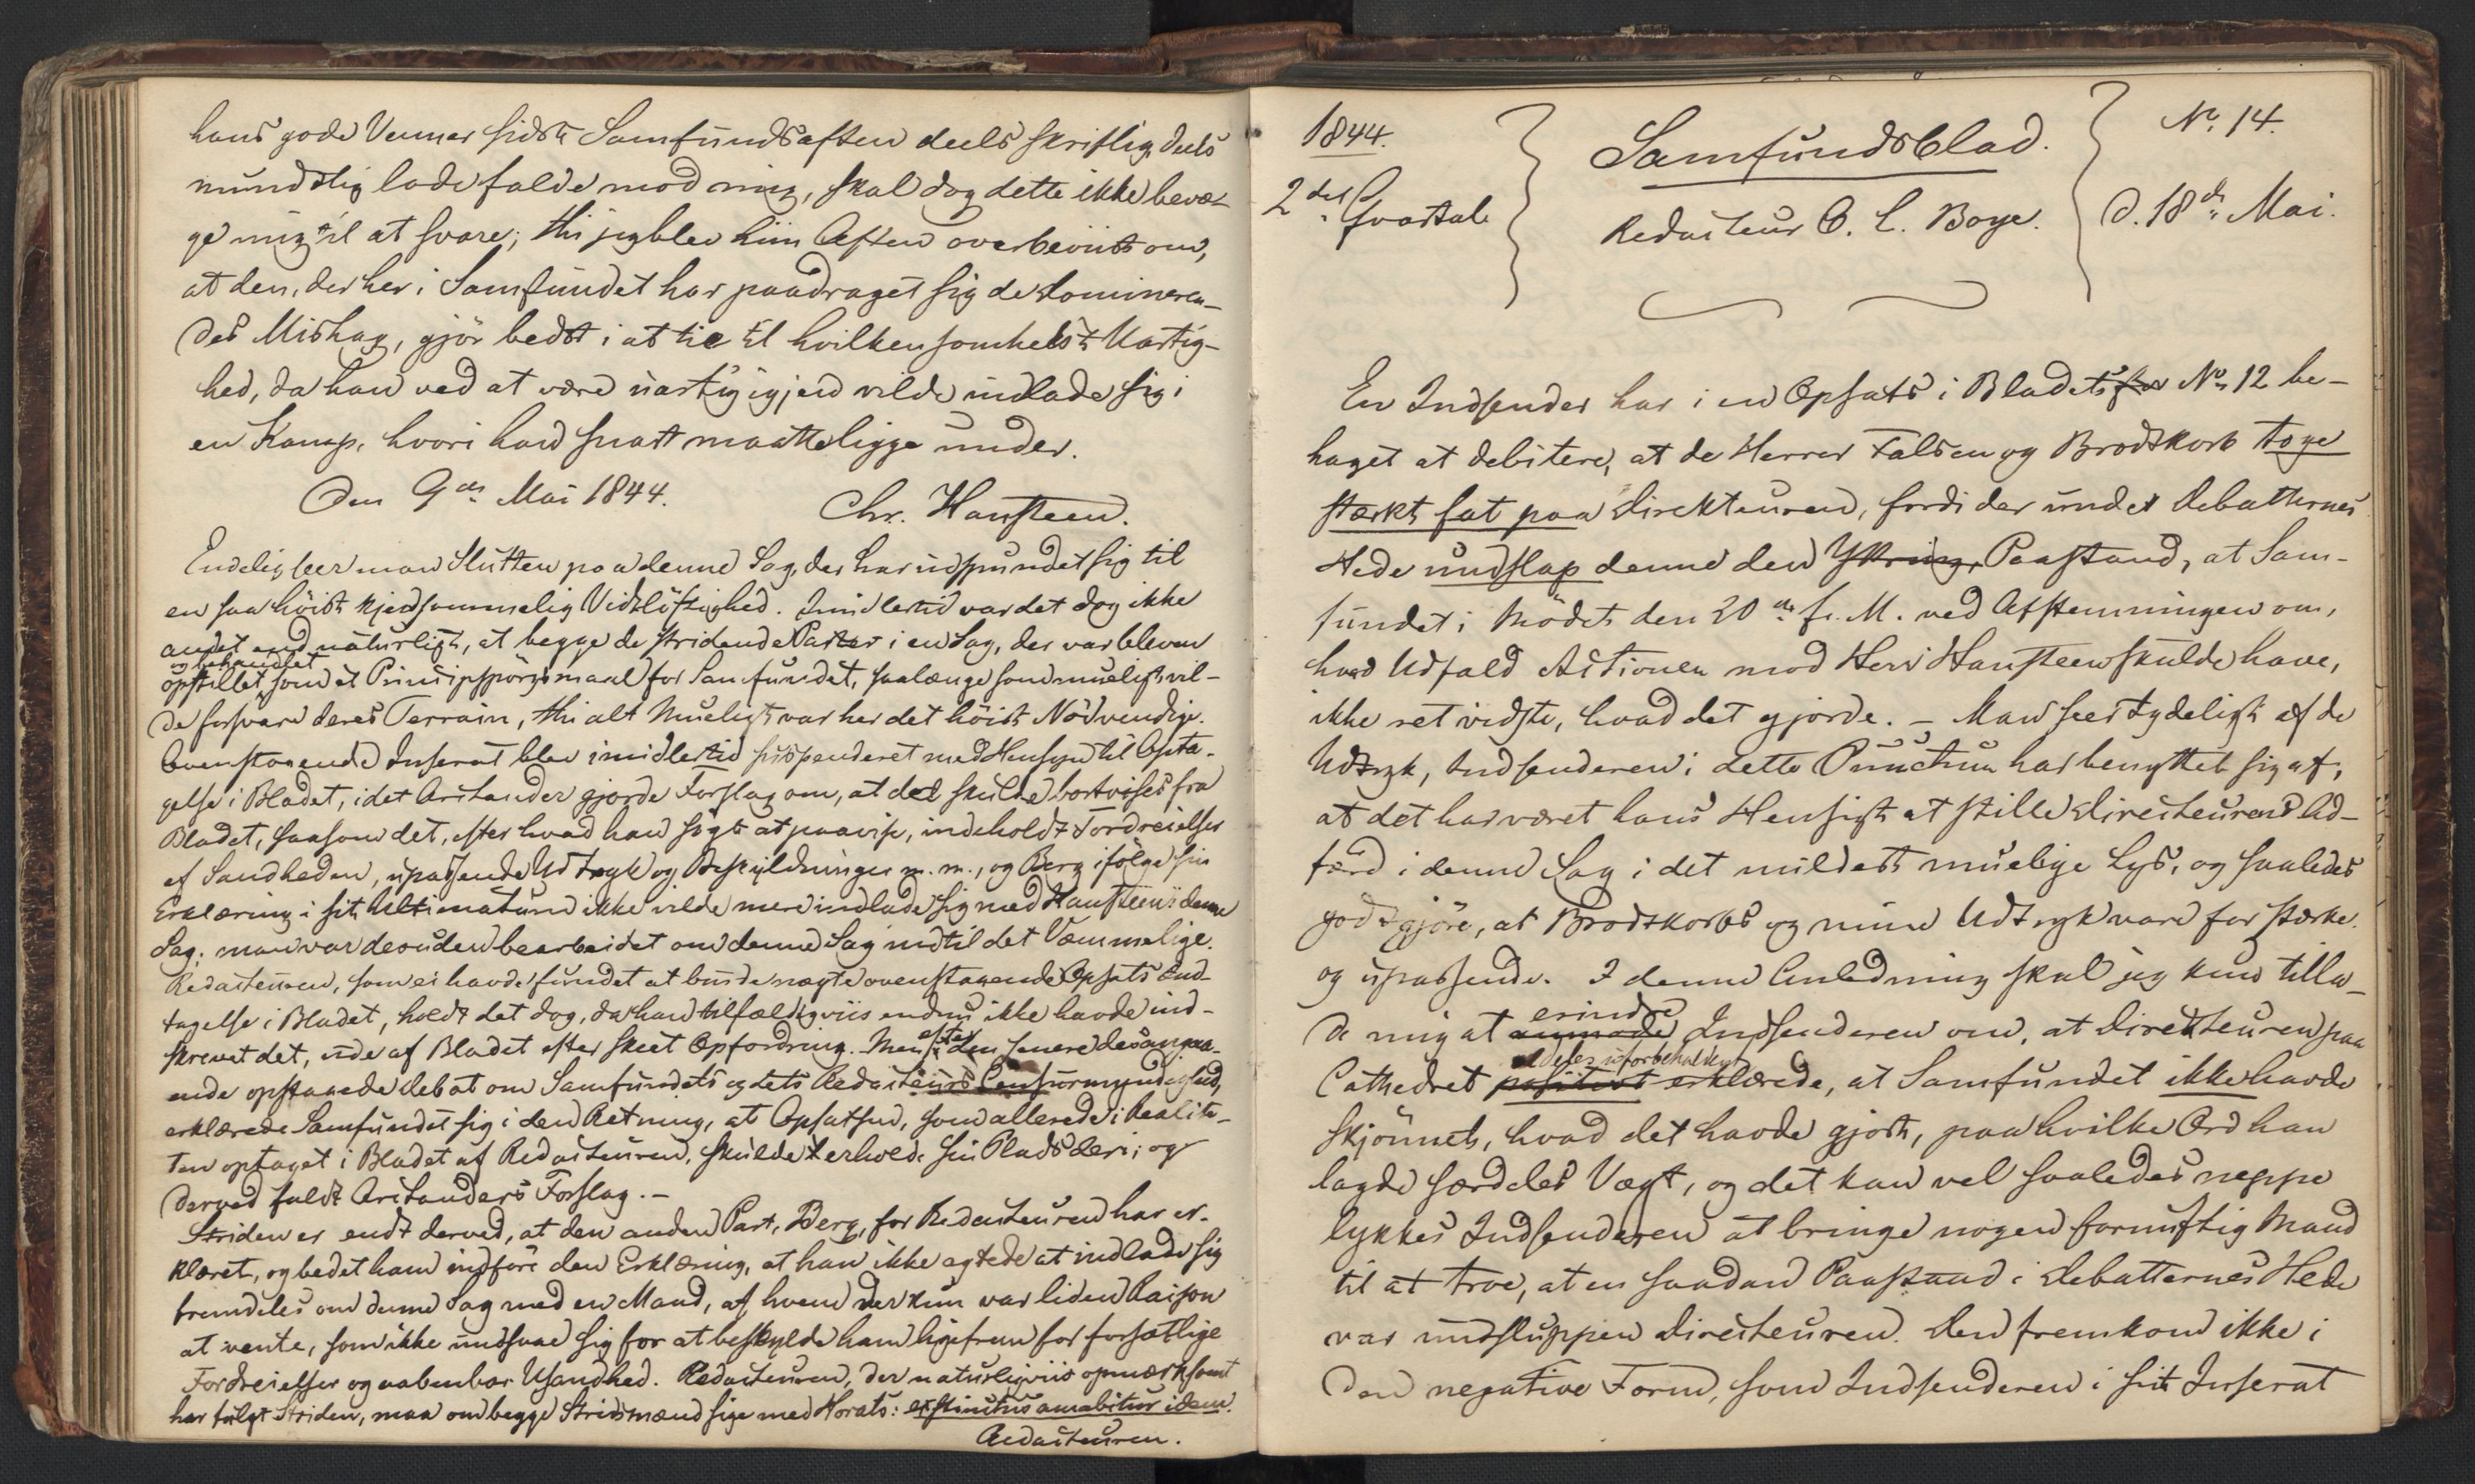 hans gode Venner sidste Samfundsaften deels skriftlig, deels
mundtlig lode falde mod mig, skal dog dette ikke bevæ-
ge mig til at svare; thi jeg blev hiin Aften overbeviist om,
at den, der her i Samfundet har paadraget sig de Domineren-
des Mishag, gjør bedst i at tie til hvilkensomhelst Uartig-
hed, da han ved at være uartig igjen vilde indlade sig i
en Kamp, hvori han snart maatte ligge under.
Den 9de Mai 1844.
Chr. Hansteen.
Endelig seer man Slutten paa denne Sag, der har udspundet sig til
en saa høist kjedsommelig Vidtløftighed. Imidlertid var det dog ikke
andet end naturligt, at begge de stridende Parter i en Sag, der var bleven
og behandlet
opstillet som et Principspørgsmaal for Samfundet, saalænge som mueligt vil-
de forsvare deres Terrain, thi alt Mueligt var her det høist Nødvendige.
Ovenstaaende Inserat blev imidlertid suspenderet med Hensyn til Opta-
gelse i Bladet, idet Arctander gjorde Forslag om, at det skulde bortvises fra
Bladet, saasom det, efter hvad han søgte at paavise, indeholdt Fordreielser
af Sandheden, upassende Udtryk og Beskyldninger m. m., og Berg ifølge sin
Erklæring i sit Ultimatum ikke vilde mere indlade sig med Hansteen i denne
Sag; man var desuden bearbeidet om denne Sag indtil det Væmmelige.
Redacteuren, som ei havde fundet at burde nægte ovenstaaende Opsats Ind-
tagelse i Bladet, holdt det dog, da han tilfældigviis endnu ikke havde ind-
skrevet det, ude af Bladet efter skeet Opfordring. Men
efter
den senere desangaa-
ende opstaaede Debat om Samfundets og dets Redacteurs Censurmyndighed,
erklærede Samfundet sig i den Retning, at Opsatsen, som allerede i Realite-
ten optaget i Bladet af Redacteuren, skulde erholde sin Plads deri; og
derved faldt Arctanders Forslag. –
Striden er endt derved, at den anden Part, Berg, for Redacteuren har er-
klæret, og bedet ham indføre den Erklæring, at han ikke agtede at indlade sig
fremdeles om denne Sag med en Mand, af hvem der kun var liden Raison
at vente, som ikke undsaae sig for at beskylde ham ligefrem for forsætlige
Fordreielser og aabenbar Usandhed. Redacteuren, der naturligviis opmærksomt
har fulgt Striden, maa om begge Stridsmænd sige med Horats: exstinctus amabitur idem.
Redacteuren.
1844.
2det Qvartal
Samfundsblad.
Redacteur C. L. Boye.
No 14.
D. 18de Mai.
En Indsender har i en Opsats i Bladets No 12 be-
haget at debitere, at de Herrer Falsen og Brodtkorb toge
stærkt fat paa Direkteuren, fordi der under Debatternes
Hede undslap denne den Yttring, Paastand, at Sam-
fundet i Mødet den 20de f. M. ved Afstemningen om,
hvad Udfald Actionen mod Herr Hansteen skulde have,
ikke ret vidste, hvad det gjorde. – Man seer tydeligt af de
Udtryk, Indsenderen i dette Punctum har benyttet sig af,
at det har været hans Hensigt at stille Directeurens Ad-
færd i denne Sag i det mildest muelige Lys, og saaledes
godtgjøre, at Brodtkorbs og mine Udtryk vare for stærke
og upassende. I denne Anledning skal jeg kun tilla-
erindre
de mig at anmode Indsenderen om, at Directeuren paa
aldeles uforbeholdent
Cathedret positivt erklærede, at Samfundet ikke havde
skjønnet, hvad det havde gjort, paa hvilke Ord han
lagde særdeles Vægt, og det kan vel saaledes neppe
lykkes Indsenderen at bringe nogen fornuftig Mand
til at troe, at en saadan Paastand i Debatternes Hede
var undsluppen Directeuren. Den fremkom ikke i
den negative Form, som Indsenderen i sit Inserat